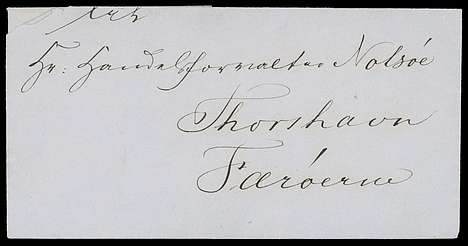 Hr: Handelsforvalter Nolsøe
Thorshavn
Færøerne